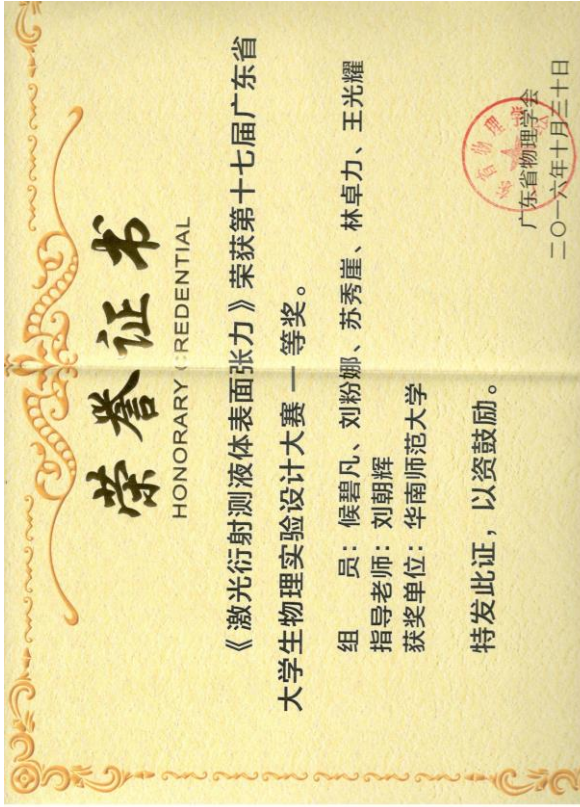 荣誉证书
HONORARY CREDENTIAL
《激光衍射测液体表面张力》荣获第十七届广东省
大学生物理实验设计大赛一等奖。
组 员：候碧凡、刘粉娜、苏秀崖、林卓力、王光耀
指导老师：刘朝辉
获奖单位：华南师范大学
特发此证，以资鼓励。
广东省物理学会
二〇一六年十月三十日